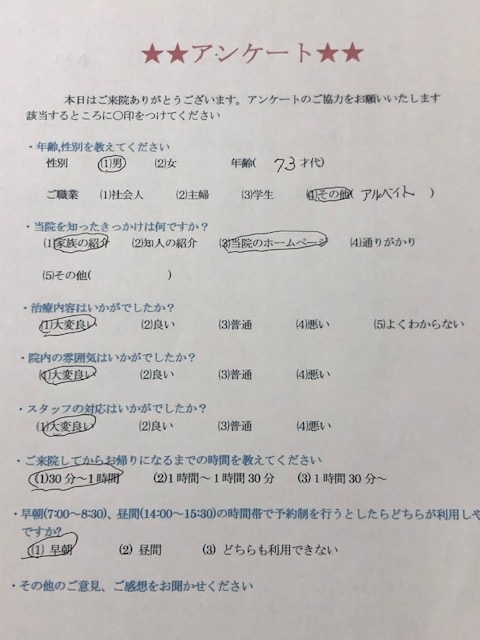 ★★アンケート★★
本日はご来院ありがとうございます。アンケートのご協力をお願いいたします
該当するところに〇印をつけてください
・年齢,性別を教えてください
性別 (1)男 (2)女 年齢( 73 才代)
ご職業 (1)社会人 (2)主婦 (3)学生 (4)その他( アルベイト )
・当院を知ったきっかけは何ですか？
(1)家族の紹介 (2)知人の紹介 (3)当院のホームページ (4)通りがかり
(5)その他( )
・治療内容はいかがでしたか？
(1)大変良い (2)良い (3)普通 (4)悪い (5)よくわからない
・院内の雰囲気はいかがでしたか？
(1)大変良い (2)良い (3)普通 (4)悪い
・スタッフの対応はいかがでしたか？
(1)大変良い (2)良い (3)普通 (4)悪い
・ご来院してからお帰りになるまでの時間を教えてください
(1)30分～1時間 (2)1時間～1時間30分 (3)1時間30分～
・早朝(7:00～8:30)、昼間(14:00～15:30)の時間帯で予約制を行うとしたらどちらが利用しや
ですか?
(1) 早朝 (2) 昼間 (3) どちらも利用できない
・その他のご意見、ご感想をお聞かせください